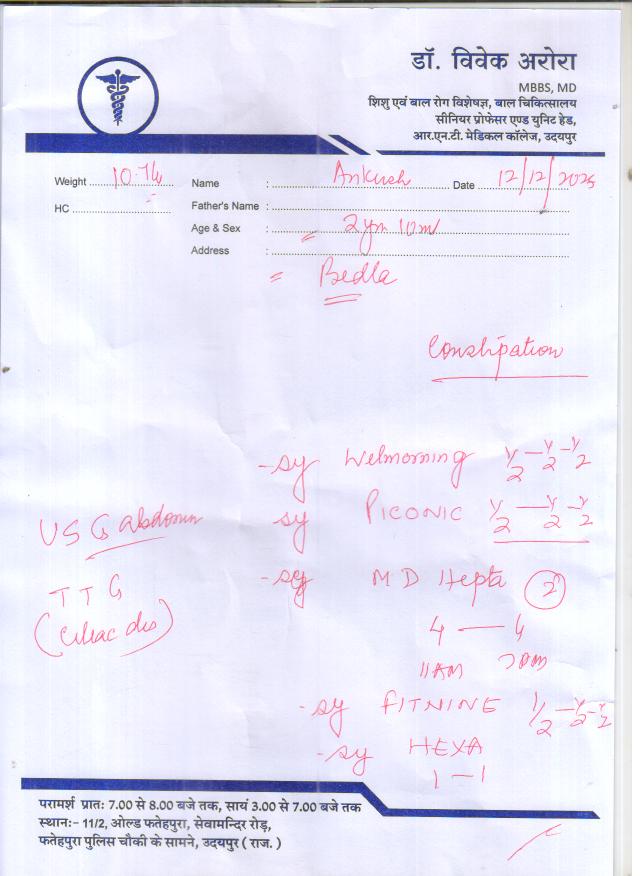 डॉ. विवेक अरोरा
MBBS, MD
शिशु एवं बाल रोग विशेषज्ञ, बाल चिकित्सालय
सीनियर प्रोफेसर एण्ड युनिट हेड,
आर.एन.टी. मेडिकल कॉलेज, उदयपुर
Weight Name : Ankush Date 12/12/2025
HC Father's Name :
Age & Sex : 2 yrs 10 m
Address :
Bedla
Constipation
- sy Welmorning 1/2 - 1/2 - 1/2
USG abdomen sy PICONIC 1/2 - 1/2 - 1/2
- sy M D Hepta 2
TTG
4 — 4
(celiac dis)
11 AM 7 PM
- sy FITNINE 1/2 - 1/2 - 1/2
- sy HEXA
1 - 1
परामर्श प्रातः 7.00 से 8.00 बजे तक, सायं 3.00 से 7.00 बजे तक
स्थानः- 11/2, ओल्ड फतेहपुरा, सेवामन्दिर रोड़,
फतेहपुरा पुलिस चौकी के सामने, उदयपुर ( राज. )